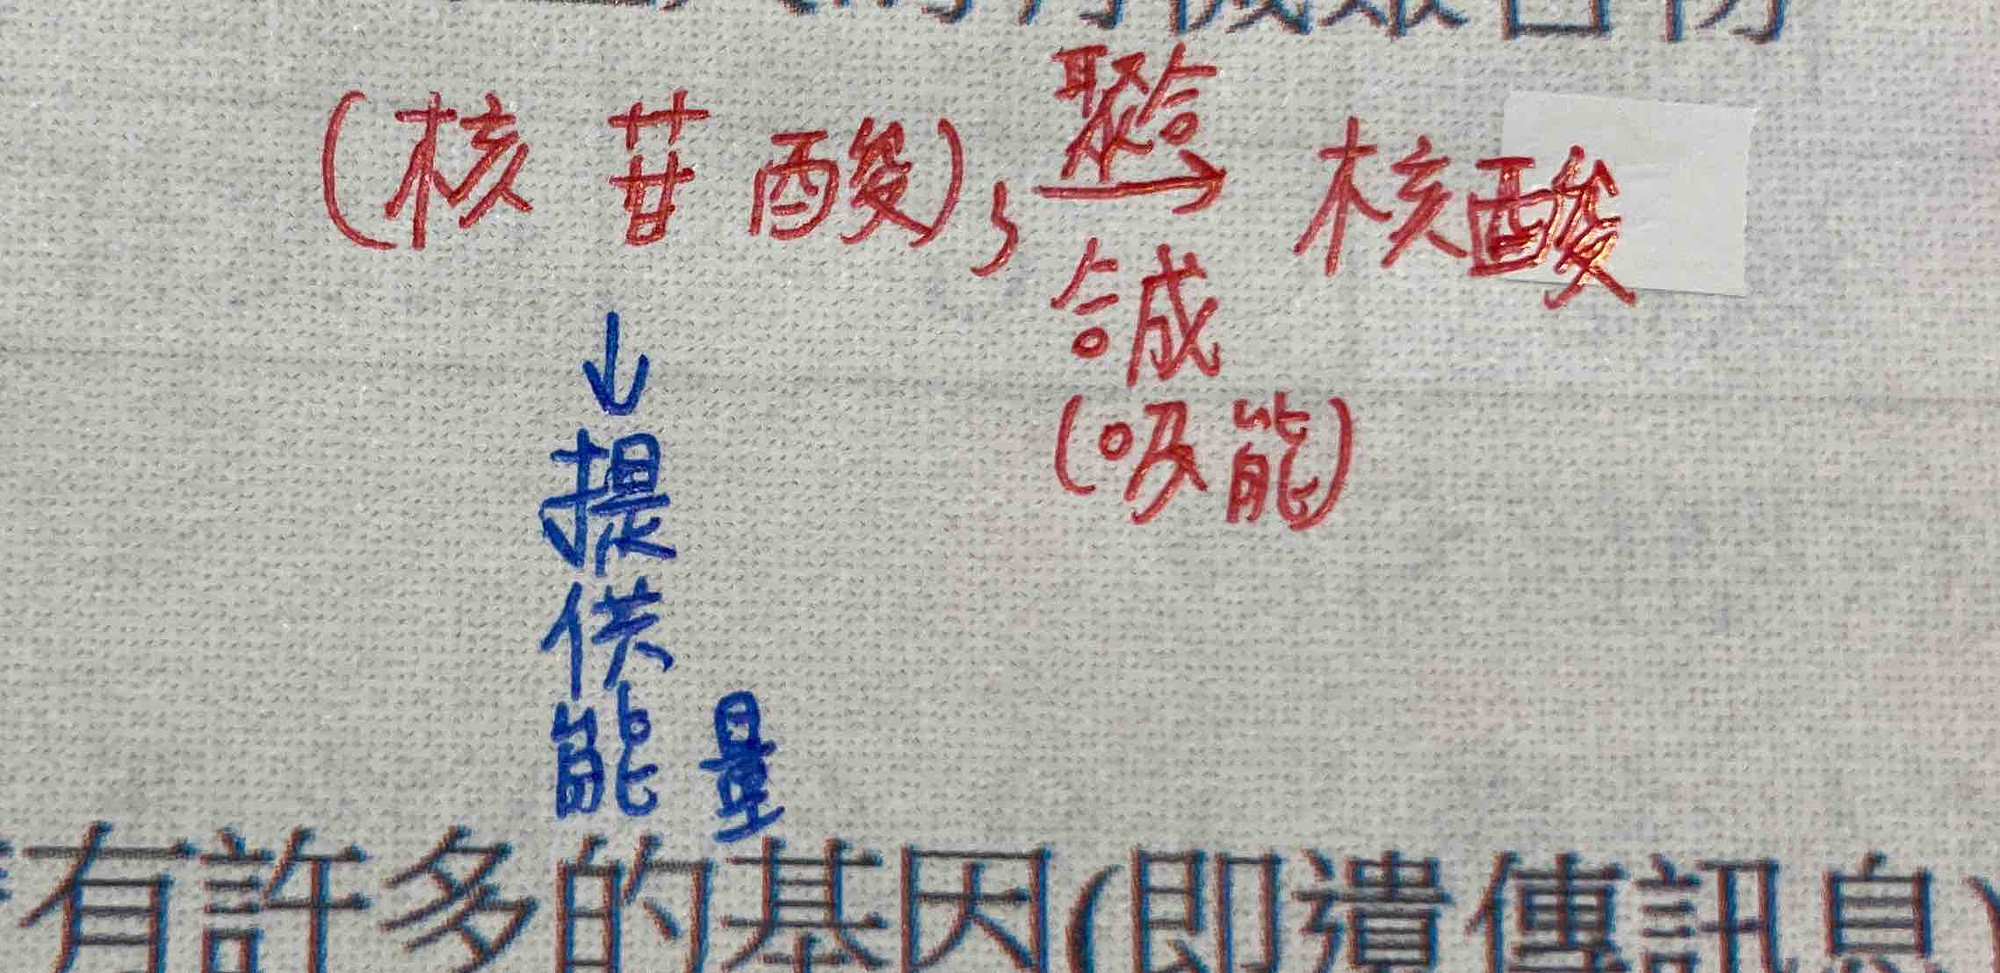 聚合
(核苷酸), → 核酸
合成
(吸能)
↓
提
供
能量
有許多的基因(即遺傳訊息)